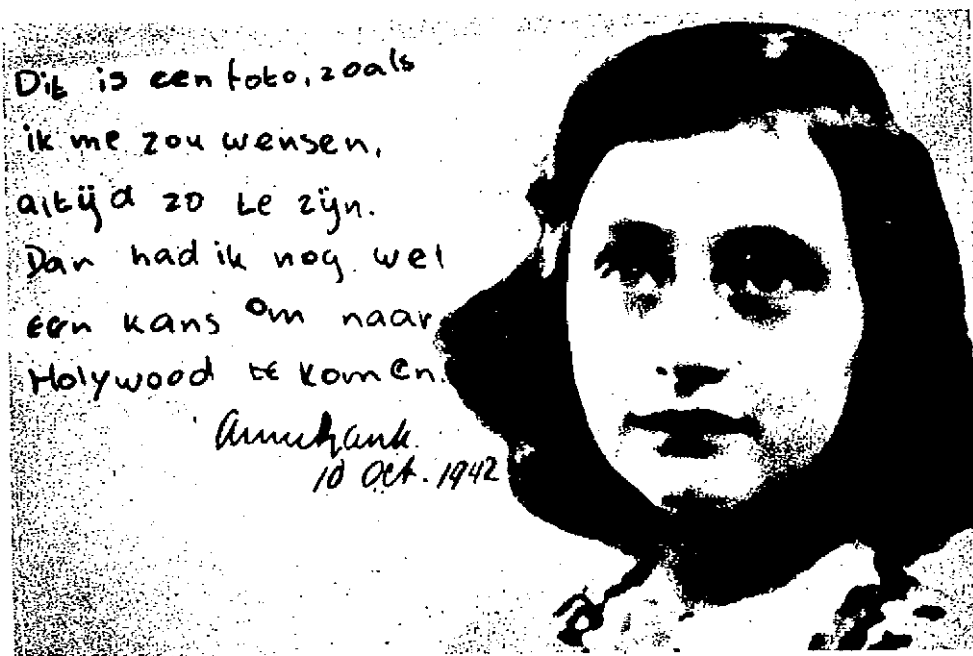 Dit is een foto, zoals
ik me zou wensen,
altijd zo te zijn.
Dan had ik nog wel
een kans om naar
Holywood te komen.
Annefrank.
10 Oct. 1942